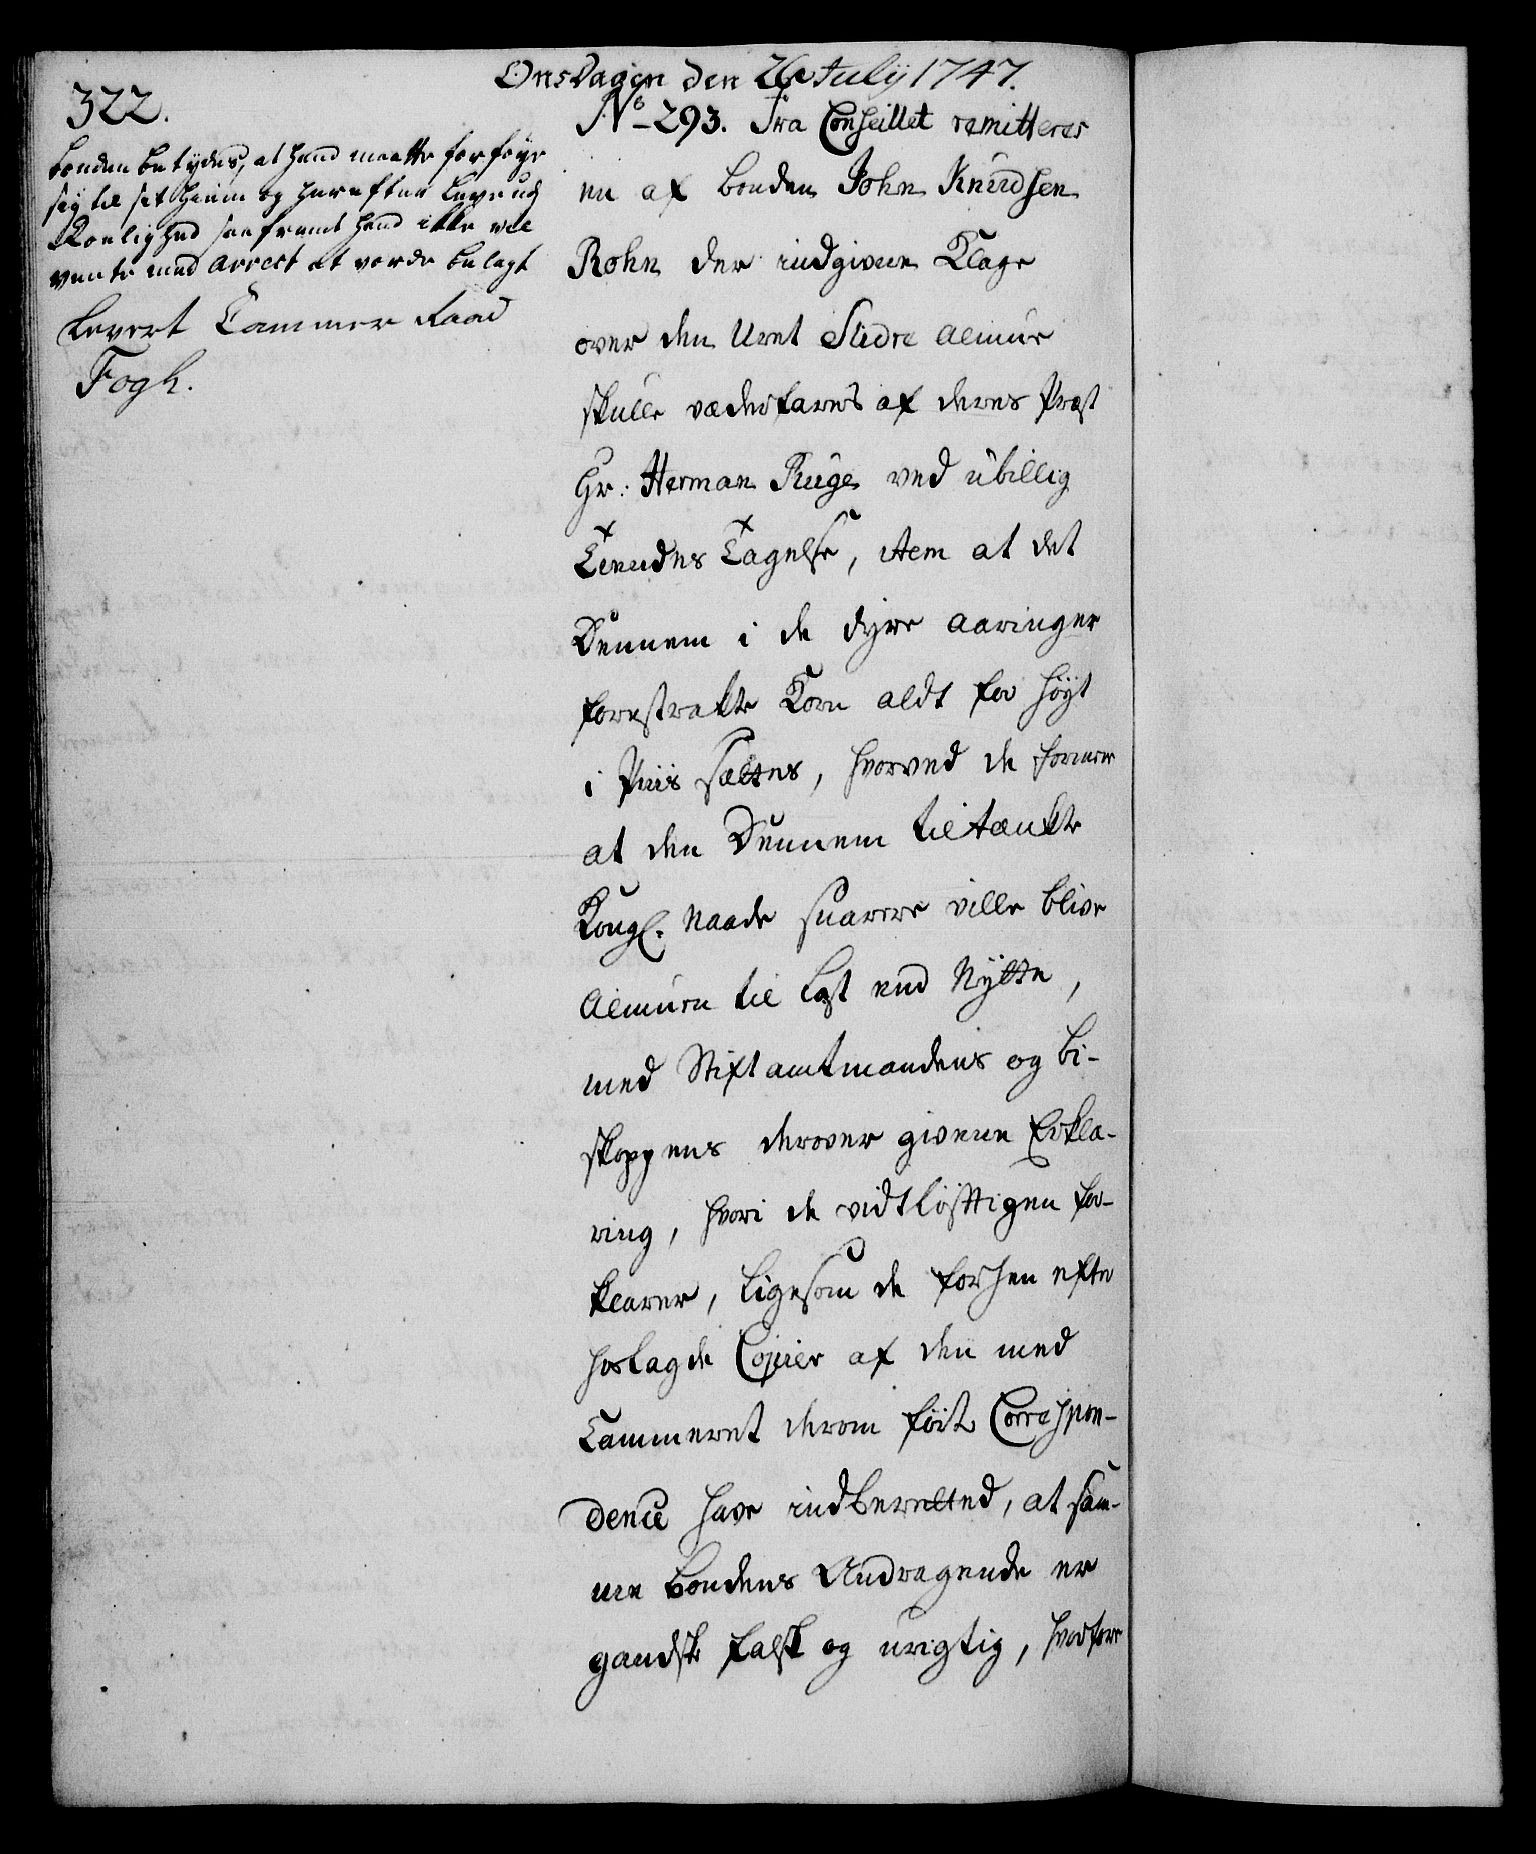 Onsdagen den 26 July 1747.
322.
bonden betydes, at hand maatte forføye
sig til sit hiem og herefter leve udj
Roelighed saafremt hand icke vil
vente med arrest at vorde belagt
Levert Cammer Raad
Fogh.
No 293. Fra Conseillet remitteres
en af bonden John Knudsen
Rohn der indgiven Klage
over den Uret Slidre Almue
skulle vederfares af deres Præst
Hr. Herman Ruge ved ubillig
Tiendes Tagelse, item at det
Dennem i de dyre Aaringer
forestrakte Korn aldt for høyt
i Priis sættes, hvorved de formener
at den Dennem tiltænkte
Kongl. Naade snarere ville blive
Almuen til Last end Nytte,
med Stiftamtmandens og Bi-
skoppens derover givene Erklæ-
ring, hvori de vidtløfttigen for-
klarer, ligesom de forhen efter
hoslagde Copier af den med
Cammeret derom førte Correspon-
dence have indberetted, at sam-
me Bondens Andragende er
gandske falsk og urigtig, hvorfore